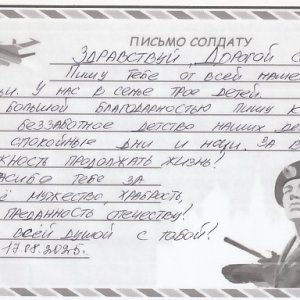 ПИСЬМО СОЛДАТУ
ЗДРАВСТВУЙ, ДОРОГОЙ С
ПИШУ ТЕБЕ ОТ ВСЕЙ НАШЕ
ЬИ. У НАС В СЕМЬЕ ТРОЕ ДЕТЕЙ.
БОЛЬШОЙ БЛАГОДАРНОСТЬЮ ПИШУ К
БЕЗЗАБОТНОЕ ДЕТСТВО НАШИХ Д
СПОКОЙНЫЕ ДНИ И НОЧИ. ЗА В
ЖНОСТЬ ПРОДОЛЖАТЬ ЖИЗНЬ!
АСИБО ТЕБЕ ЗА
Ё МУЖЕСТВО, ХРАБРОСТЬ,
ПРЕДАННОСТЬ ОТЕЧЕСТВУ!
ВСЕЙ ДУШОЙ С ТОБОЙ!
17.08.2025.